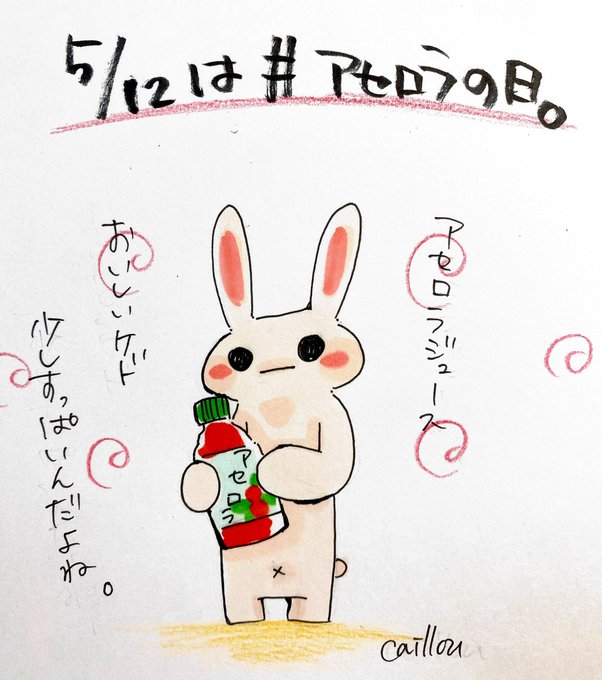 5/12は#アセロラの日。
アセロラジュース
おいしいケド
少しすっぱいんだよね。
アセロラ
caillou